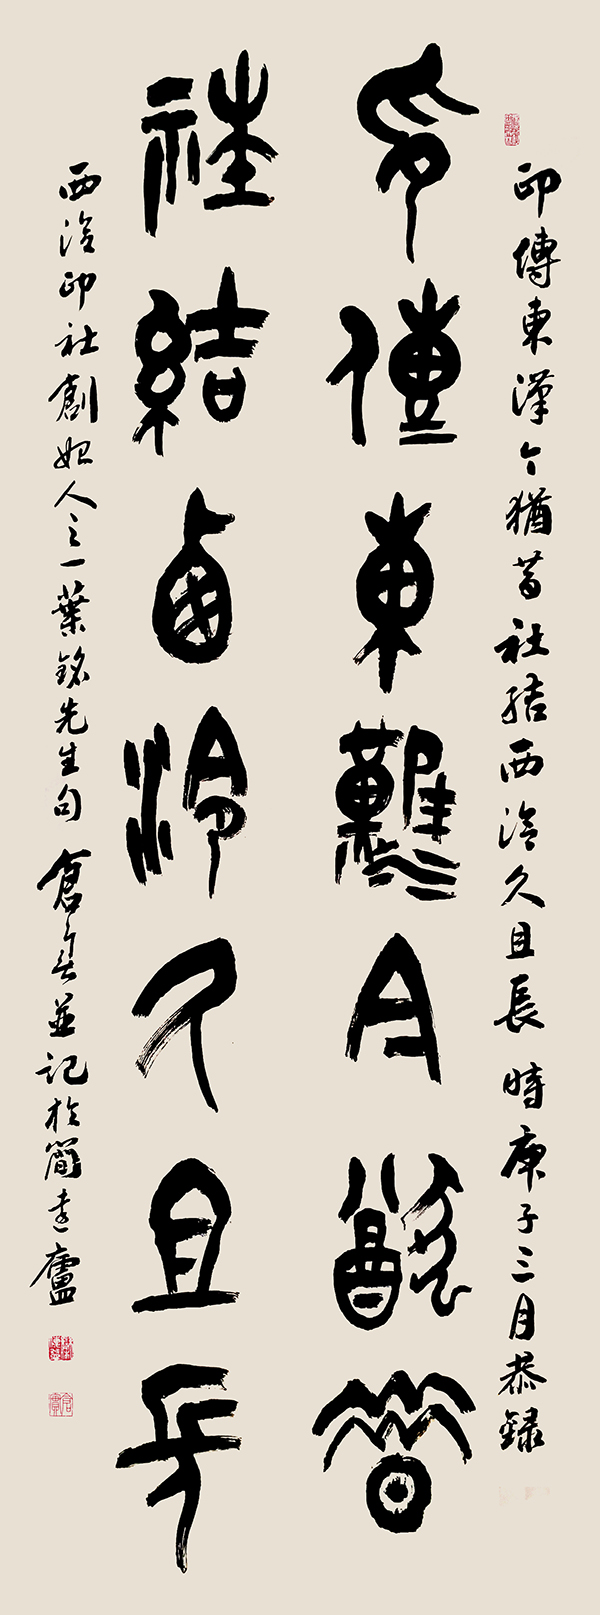 印傳東漢今猶昔
社結西泠久且長
印傳東漢今猶昔社結西泠久且長時庚子三月恭録
西泠印社創始人之一葉銘先生句倉
並記於簡
廬